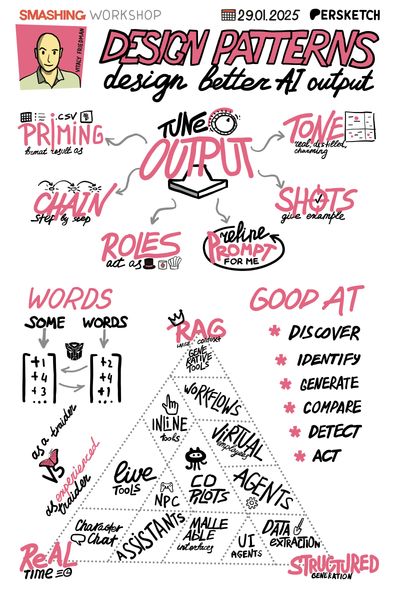 SMASHING WORKSHOP
29.01.2025
PERSKETCH
VITALY FRIEDMAN
DESIGN PATTERNS
design better AI output
.CSV
PRiMING
format result as
TUNE
OUTPUT
TONE
real, distilled,
charming
CHAIN
step by step
SHOTS
give example
ROLES
act as
refine
PROMPT
FOR ME
WORDS
SOME WORDS
+1
+4
+3
+2
+4
+1
as a traider
VS
as experienced
traider
GOOD AT
DISCOVER
IDENTIFY
GENERATE
COMPARE
DETECT
ACT
RAG
GENE
RATIVE
TOOLS
WORKFLOWS
INLINE
tools
VIRTUAL
employees
live
TOOLS
NPC
CO
PILOTS
AGENTS
Character
Chat
ASSISTANTS
MALLE
ABLE
interfaces
UI
AGENTS
DATA
EXTRACTION
ReAL
TIME
STRUCTURED
GENERATION